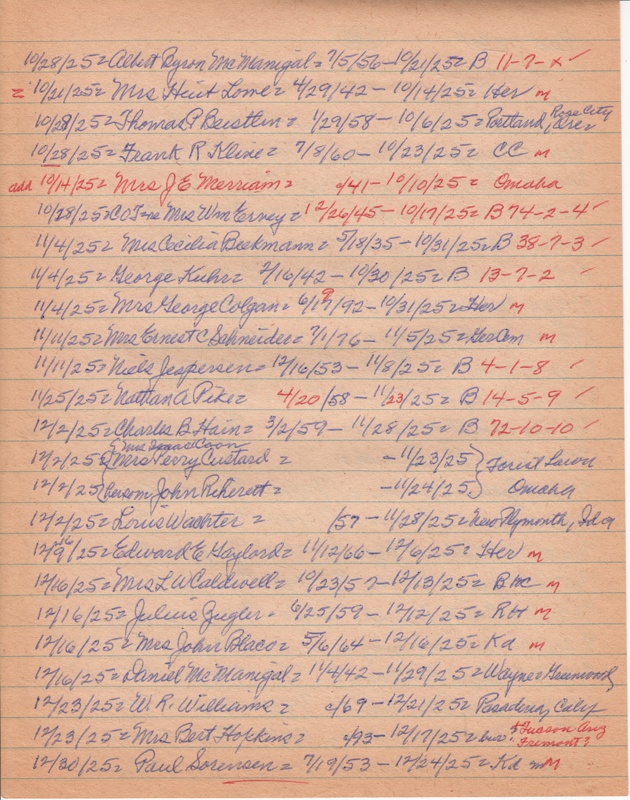 10/28/25 = Albert Byron McManigal = 7/5/56 - 10/21/25 = B 11-7-x ✓
= 10/21/25 = Mrs Hiut Lowe = 4/29/42 - 10/14/25 = Her m
10/28/25 = Thomas P Beistlin = 1/29/58 - 10/6/25 = Portland, Rose City Ore
10/28/25 = Frank R Kline = 7/8/60 - 10/23/25 = CC m
add 10/14/25 = Mrs J E Merriam = c/41 - 10/10/25 = Omaha
10/28/25 = Mrs Wm Erney = 12/26/45 - 10/17/25 = B 74-2-4 ✓
11/4/25 = Mrs Cecilia Beekmann = 5/18/35 - 10/31/25 = B 38-7-3 ✓
11/4/25 = George Kuhr = 2/16/42 - 10/30/25 = B 13-7-2 ✓
11/4/25 = Mrs George Colgan = 6/19/92 - 10/31/25 = Her m
11/11/25 = Mrs Ernest C Schneider = 7/1/76 - 11/5/25 = GerCem m
11/11/25 = Niels Jespersen = 12/16/53 - 11/8/25 = B 4-1-8 ✓
11/25/25 = Nathan A Pike = 4/20/58 - 11/23/25 = B 14-5-9 ✓
12/2/25 = Charles B Hain = 3/2/59 - 11/28/25 = B 72-10-10 ✓
Mrs Isaac Coon
12/2/25 = Mrs Perry Custard = - 11/23/25 } Forest Lawn
12/2/25 } person John Rickerett = - 11/24/25 } Omaha
12/2/25 = Louis Wachter = /57 - 11/28/25 = New Plymouth, Ida
12/9/25 = Edward E Gaylord = 11/12/66 - 12/6/25 = Her m
12/16/25 = Mrs L W Caldwell = 10/23/57 - 12/13/25 = B m
12/16/25 = Julius Zugler = 6/25/59 - 12/12/25 = RH m
12/16/25 = Mrs John Blaco = 5/6/64 - 12/16/25 = Kd m
12/16/25 = Daniel McManigal = 11/4/42 - 11/29/25 = Wayne
12/23/25 = W. R. Williams = c/69 - 12/21/25 = Pasadena, Caly
12/23/25 = Mrs Bert Hopkins = c/93 - 12/17/25 = Tucson Ariz Fremont?
12/30/25 = Paul Sorensen = 7/19/53 - 12/24/25 = Kd m